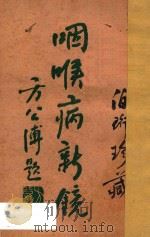 咽喉病新镜
方公溥题
珍藏